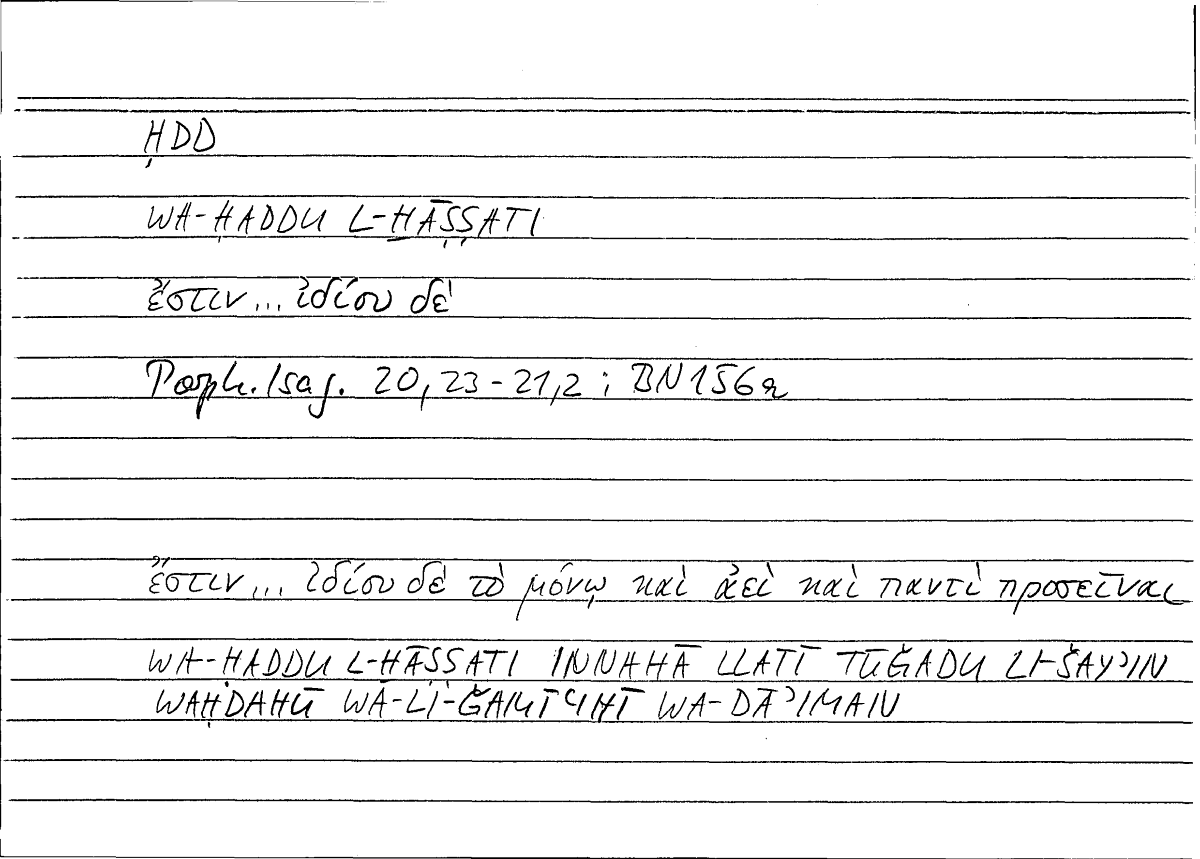 ḤDD
WA-ḤADDU L-ḪĀṢṢATI
ἔστιν... ἰδίου δὲ
Porph. Isag. 20,23-21,2; BN156a
ἔστιν... ἰδίου δὲ τὸ μόνῳ καὶ ἀεὶ καὶ παντὶ προσεῖναι
WA-ḤADDU L-ḪĀṢṢATI INNAHĀ LLATĪ TŪĞADU LI-ŠAYʾIN
WAḤDAHŪ WA-LI-ĞAMĪʿIHĪ WA-DĀʾIMAN